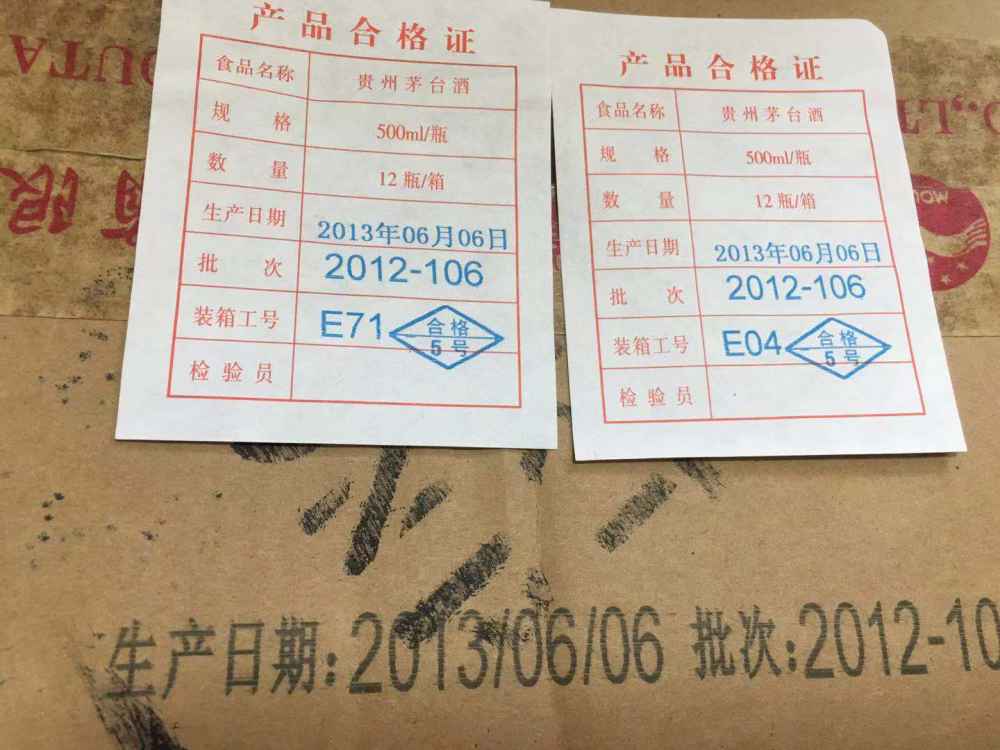 产品合格证
食品名称 贵州茅台酒
规格 500ml/瓶
数量 12瓶/箱
生产日期 2013年06月06日
批次 2012-106
装箱工号 E71 合格 5号
检验员
产品合格证
食品名称 贵州茅台酒
规格 500ml/瓶
数量 12瓶/箱
生产日期 2013年06月06日
批次 2012-106
装箱工号 E04 合格 5号
检验员
OUTA
O.,LT
有限
MOU
生产日期:2013/06/06 批次:2012-10